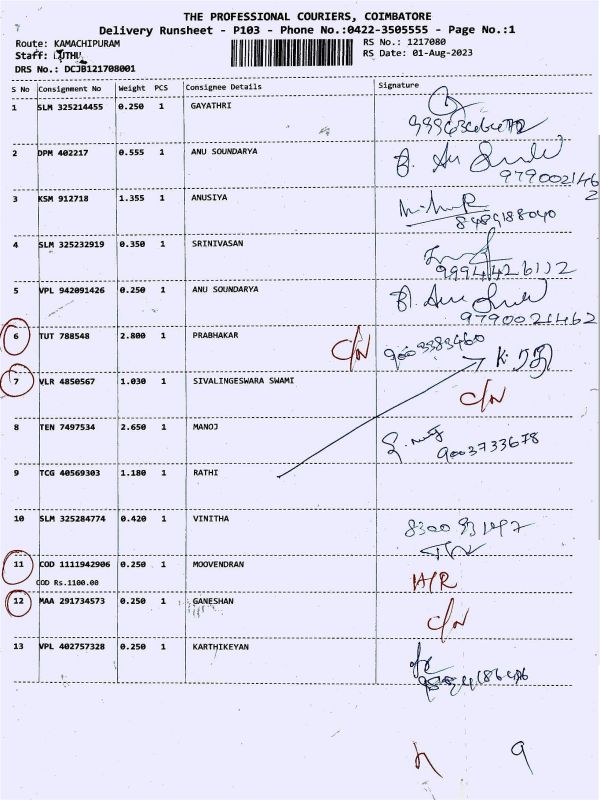 THE PROFESSIONAL COURIERS, COIMBATORE
Delivery Runsheet - P103 - Phone No.:0422-3505555 - Page No.:1
Route: KAMACHIPURAM
RS No.: 1217080
Staff:
RS Date: 01-Aug-2023
DRS No.: DCJB121708001
S No Consignment No Weight PCS Consignee Details Signature
1 SLM 325214455 0.250 1 GAYATHRI
2 DPM 402217 0.555 1 ANU SOUNDARYA
9790021462
3 KSM 912718 1.355 1 ANUSIYA
8489188040
4 SLM 325232919 0.350 1 SRINIVASAN
9994426112
5 VPL 942091426 0.250 1 ANU SOUNDARYA
9790021462
6 TUT 788548 2.800 1 PRABHAKAR C/N 9003383460
7 VLR 4850567 1.030 1 SIVALINGESWARA SWAMI C/N
8 TEN 7497534 2.650 1 MANOJ
9003733678
9 TCG 40569303 1.180 1 RATHI
10 SLM 325284774 0.420 1 VINITHA
11 COD 1111942906 0.250 1 MOOVENDRAN
COD Rs.1100.00
12 MAA 291734573 0.250 1 GANESHAN C/N
13 VPL 402757328 0.250 1 KARTHIKEYAN
9